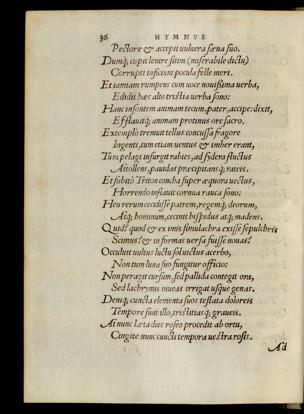 36 HYMNVS
Pectore & accepit vulnera sæua suo.
Dumq; cupit lenire sitim (miserabile dictu)
Corrupti inficiunt pocula felle meri.
Et tamiam rumpens cum uoce nouissima uerba,
Edidit hæc alto tristia uerba sono:
Hanc insontem animam tecum, pater, accipe: dixit,
Efflauitq; animam protinus ore sacro.
Extemplò tremuit tellus concussa fragore
Ingenti, tum etiam uentus & imber erant,
Tum pelagi insurgit rabies, ad sydera fluctus
Attollens, pauidas præcipitansq; rateis.
Et subitò Triton concha super æquora uectus,
Horrendo inflauit cornua rauca sono:
Heu rerum cecidisse patrem, regemq; deorum,
Atq; hominum, cecinit hispidus atq; madens.
Quid? quod & ex imis simulachra exisse sepulchris
Scimus? & in formas uersa fuisse nouas?
Occuluit uultus luctu sol uictus acerbo,
Non tum luna suo fungitur officio:
Non peragit cursum, sed pallida contegit ora,
Sed lachrymis niueas irrigat usque genas.
Deniq; cuncta elementa suos testata dolores
Tempore sunt illo, tristitiasq; graueis.
At nunc læta dies roseo procedit ab ortu,
Cingite nunc cuncti tempora uestra rosis.
Ad